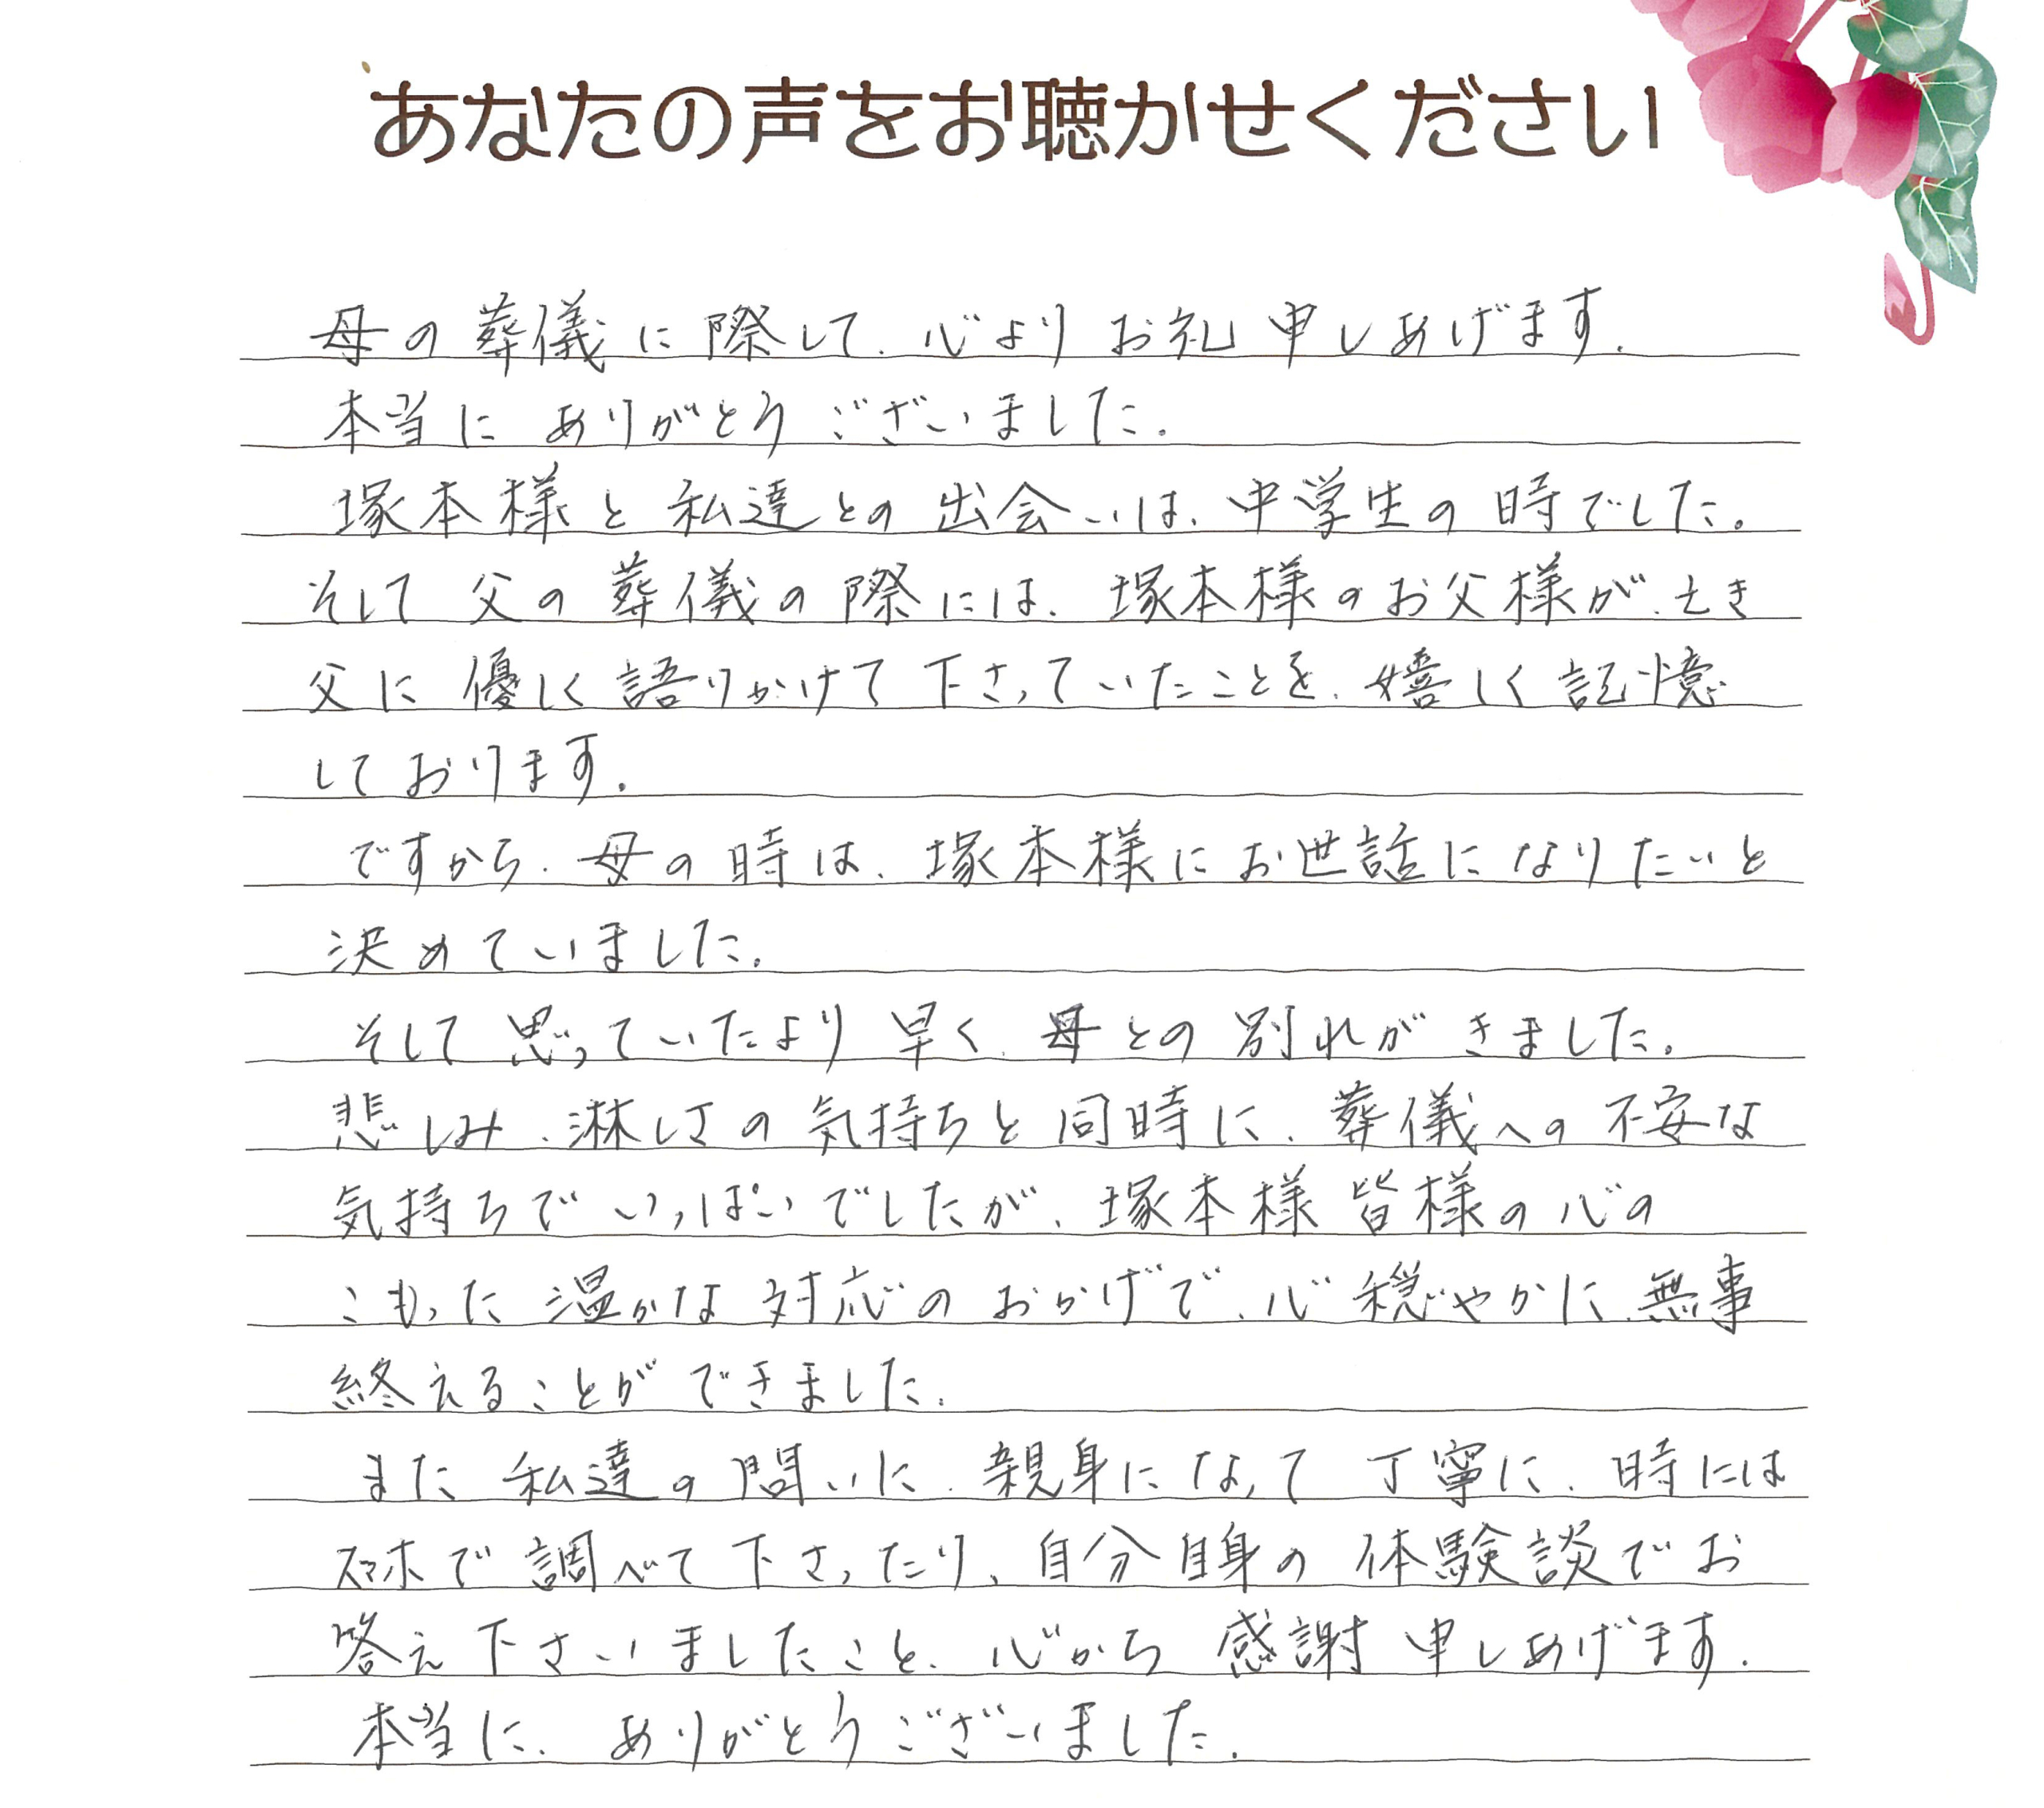 あなたの声をお聴かせください
母の葬儀に際して、心よりお礼申しあげます。
本当にありがとうございました。
塚本様と私達との出会いは、中学生の時でした。
そして父の葬儀の際には、塚本様のお父様が、亡き
父に優しく語りかけて下さっていたことを、嬉しく記憶
しております。
ですから、母の時は、塚本様にお世話になりたいと
決めていました。
そして思っていたより早く、母との別れがきました。
悲しみ、淋しさの気持ちと同時に、葬儀への不安な
気持ちでいっぱいでしたが、塚本様皆様の心の
こもった温かな対応のおかげで、心穏やかに、無事
終えることができました。
また私達の問いに、親身になって丁寧に、時には
スマホで調べて下さったり、自分自身の体験談でお
答え下さいましたこと、心から感謝申しあげます。
本当に、ありがとうございました。